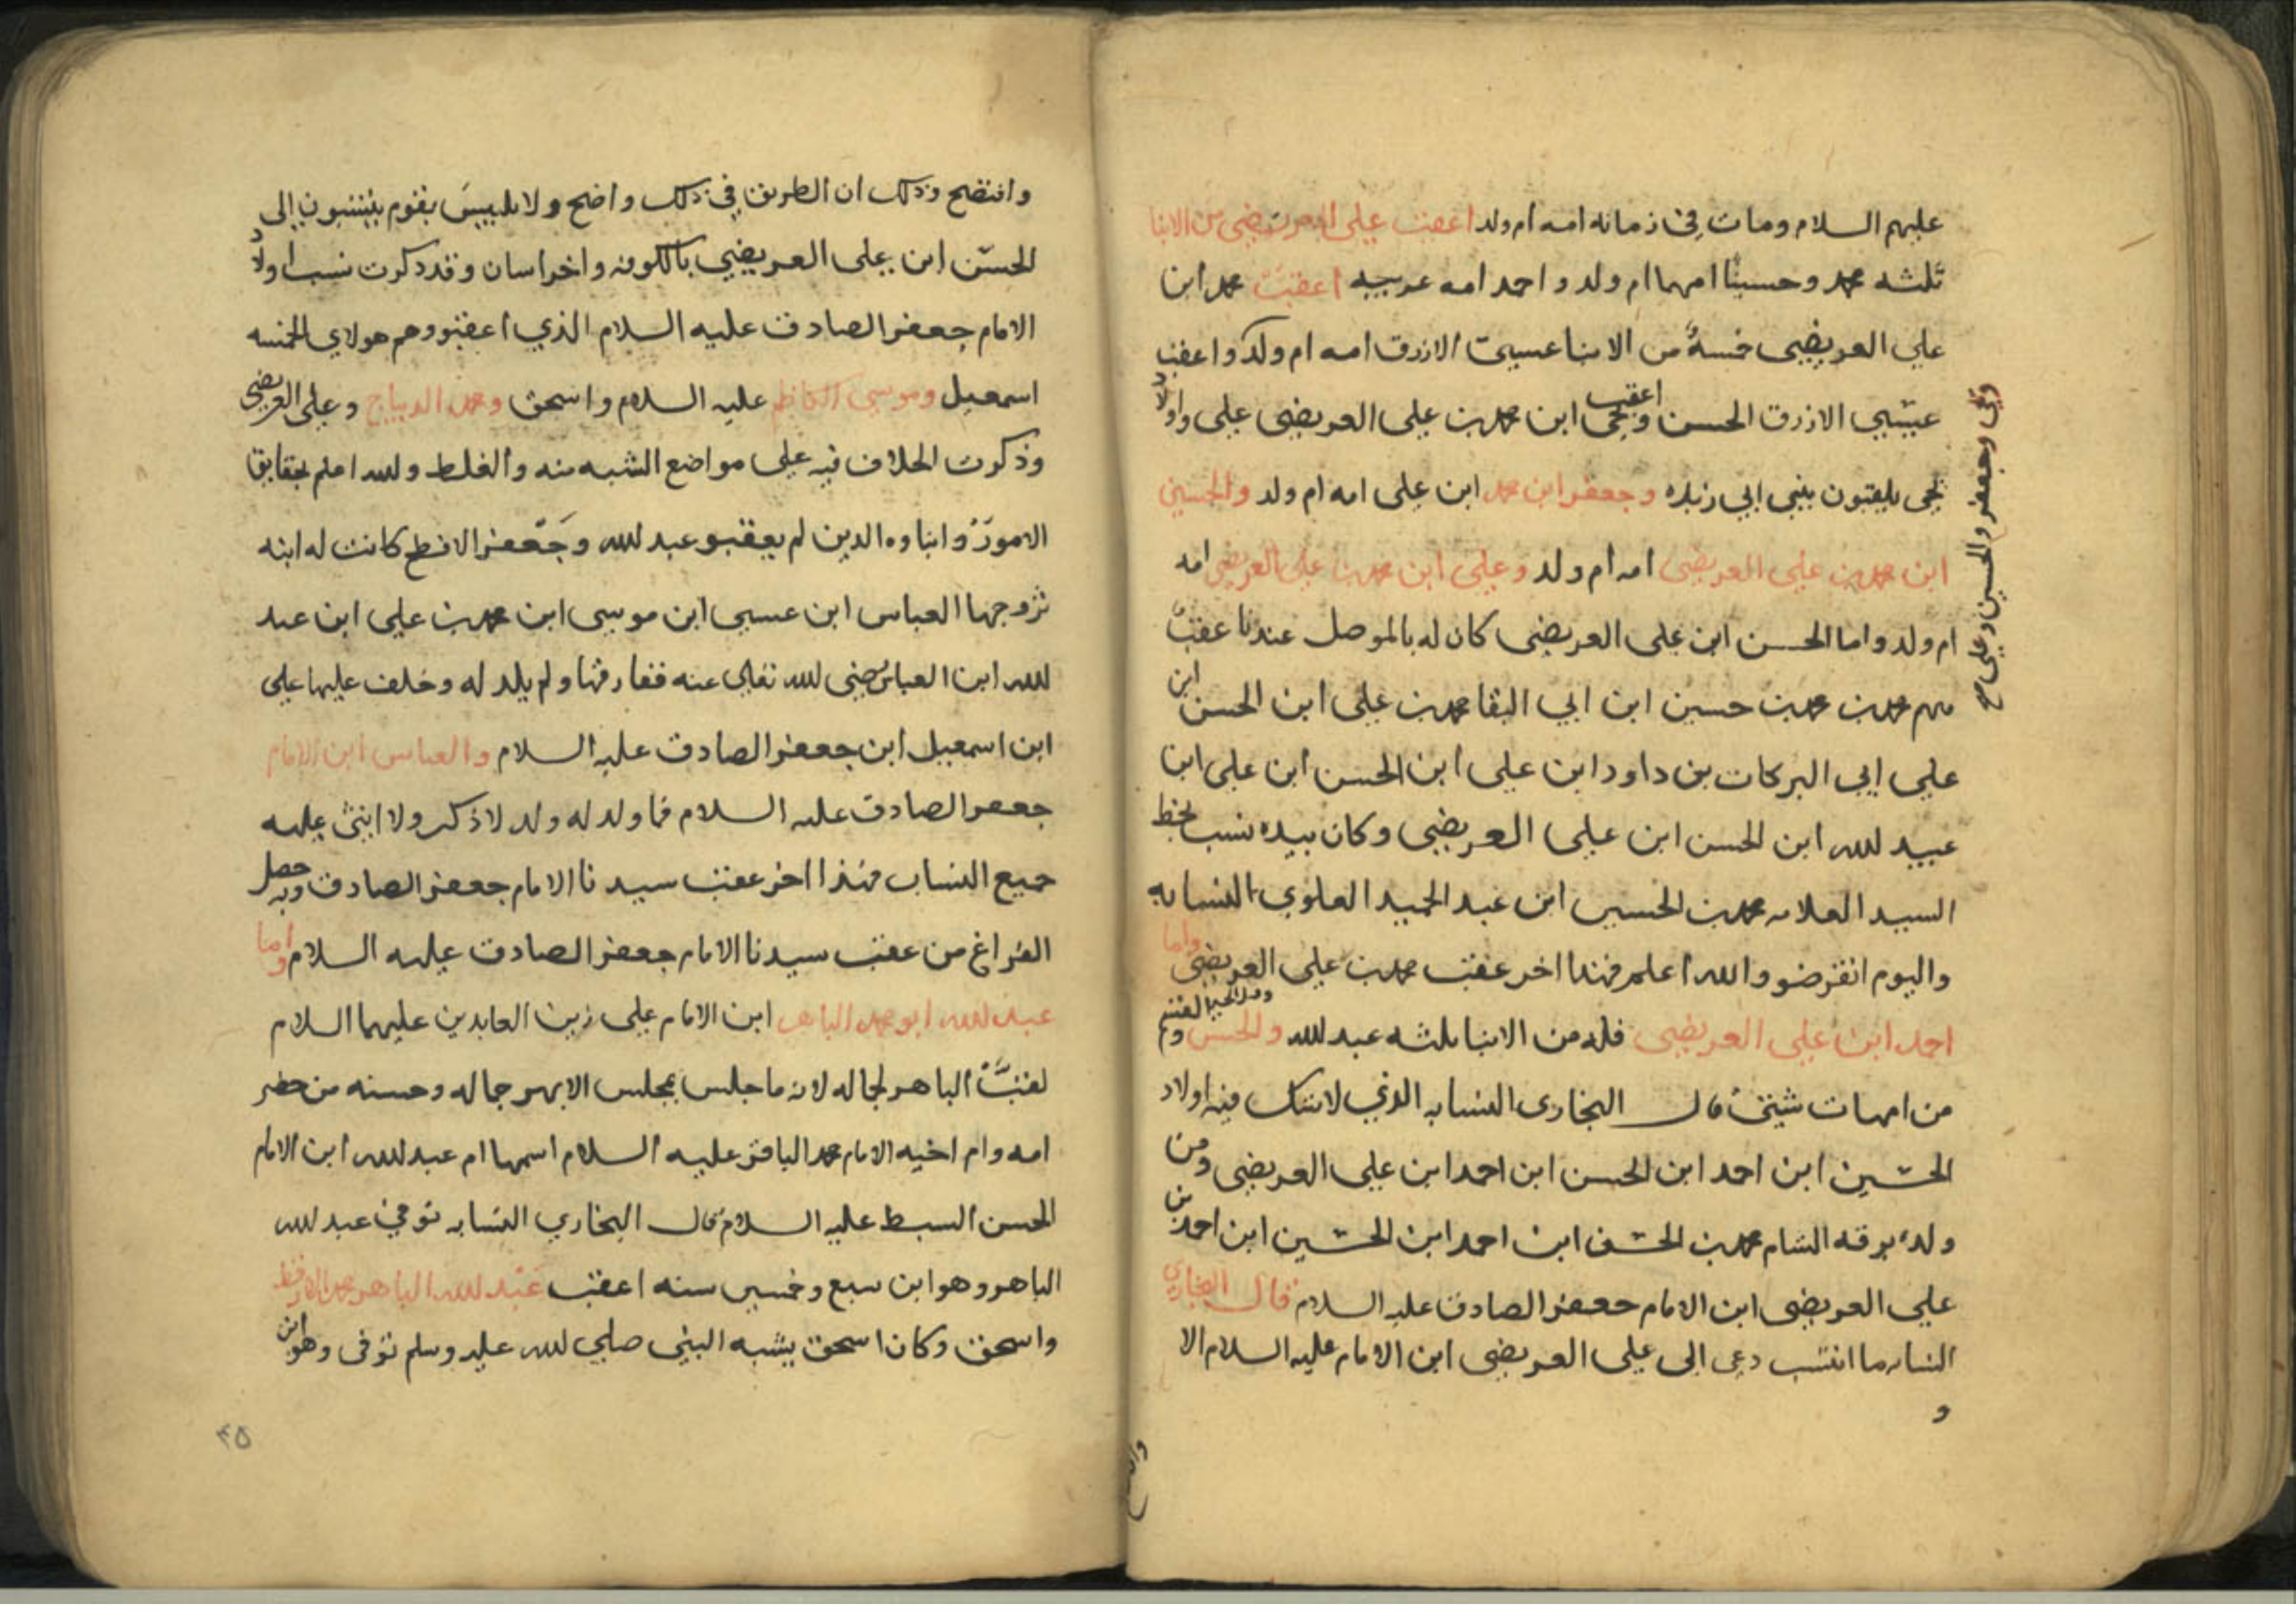 عليهم السلام ومات في زمانه امه ام ولد اعقب علي العريضي من الابنا
ثلثه محمد وحسينا امهما ام ولد و احمد امه عربيه اعقب محمد ابن
علي العريضي خمسةً من الابنا عيسى الازرق امه ام ولد واعقب
عيسى الازرق الحسن ويحيى اعقب ابن محمد بن علي العريضي علي واولاد
يحيى يلقبون ببني ابي زيده وجعفر ابن محمد ابن علي امه ام ولد والحسين
ابن محمد بن علي العريضي امه ام ولد وعلي ابن محمد بن علي العريضي امه
ام ولد واما الحسن ابن علي العريضي كان له بالموصل عندنا عقبٌ
منهم محمد بن محمد بن حسين ابن ابي البقا محمد بن علي ابن الحسن ابن
علي ابي البركات بن داود ابن علي ابن الحسن ابن علي ابن
عبيد الله ابن الحسن ابن علي العريضي وكان بيده نسب بخط
السيد العلامه محمد بن الحسين ابن عبد الحميد العلوي النسابه
واليوم انقرضو والله اعلم فهذا اخر عقب محمد بن علي العريضي واما
احمد ابن علي العريضي فله من الابنا ثلثه عبد الله والحسن وهم
من امهات شتى قال البخارى النسابه الذي لا شك فيه اولاد
الحسين ابن احمد ابن الحسن ابن احمد ابن علي العريضي ومن
ولده برقه الشام محمد بن الحسن ابن احمد ابن الحسين ابن احمد بن
علي العريضى ابن الامام جعفر الصادق عليه السلام قال البخاري
النسابه ما انتسب دعى الى على العريضى ابن الامام عليه السلام الا
و
ويحيى وجعفر والحسين وعلي صح
وافتضح وذلك ان الطريق في ذلك واضح ولا يلبيس بقوم ينتسبون الى
الحسن ابن علي العريضي بالكوفه واخراسان وقد ذكرت نسب اولاد
الامام جعفر الصادق عليه السلام الذي اعقبو وهم هولاي الخمسه
اسمعيل وموسى الكاظم عليه السلام واسحق ومحمد الديباج وعلي العريضي
وذكرت الخلاف فيه على مواضع الشبه منه والغلط والله اعلم بحقايق
الامور وابناوه الدين لم يعقبو عبد الله وجعفر الافطح كانت له ابنه
تزوجها العباس ابن عسيى ابن موسى ابن محمد بن علي ابن عبد
الله ابن العباس رضى الله تعالى عنه ففارقها ولم يلد له وخلف عليها علي
ابن اسمعيل ابن جعفر الصادق عليه السلام والعباس ابن الامام
جعفر الصادق عليه السلام فما ولد له ولد لا ذكر ولا انثى عليه
جميع النساب فهذا اخر عقب سيدنا الامام جعفر الصادق وبه حصل
الفراغ من عقب سيدنا الامام جعفر الصادق عليه السلام واما
عبد الله ابو محمد الباهر ابن الامام علي زين العابدين عليهما السلام
لقب الباهر لجماله لانه ما جلس بمجلس الا بهر جماله وحسنه من حضر
امه وام اخيه الامام محمد الباقر عليه السلام اسمها ام عبد الله ابن الامام
الحسن السبط عليه السلام قال البخاري النسابه توفي عبد الله
الباهر وهو ابن سبع وخمسين سنه اعقب عبد الله الباهر محمد الارقط
واسحق وكان اسحق يشبه النبي صلي الله عليه وسلم توفى وهو ابن
٤٥